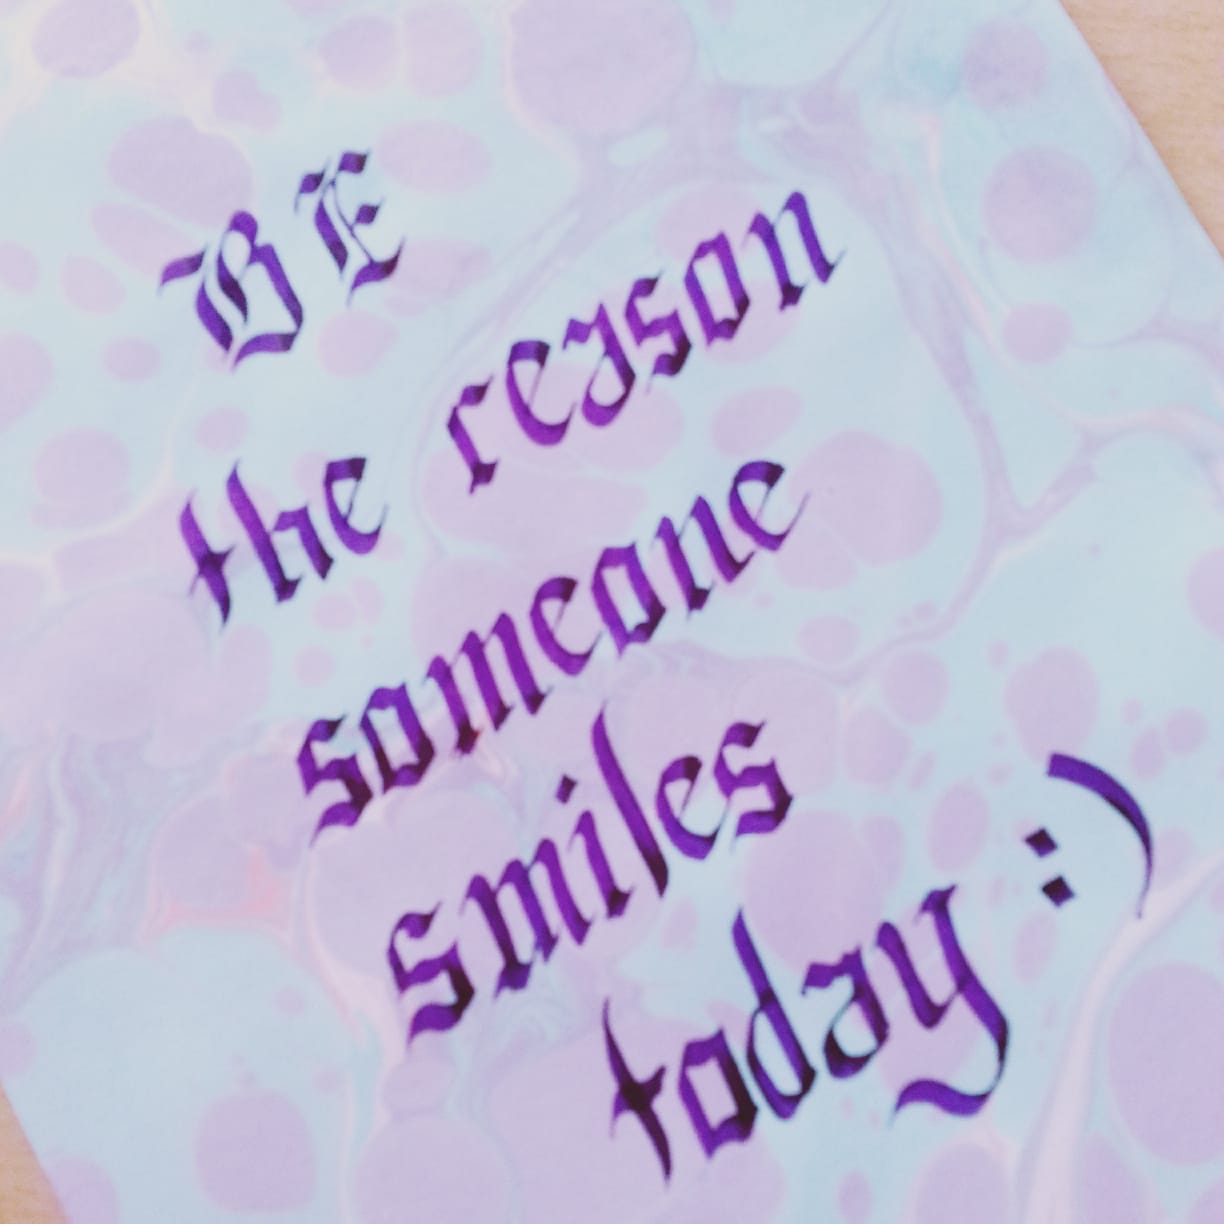 BE
the reason
someone
smiles
today :)